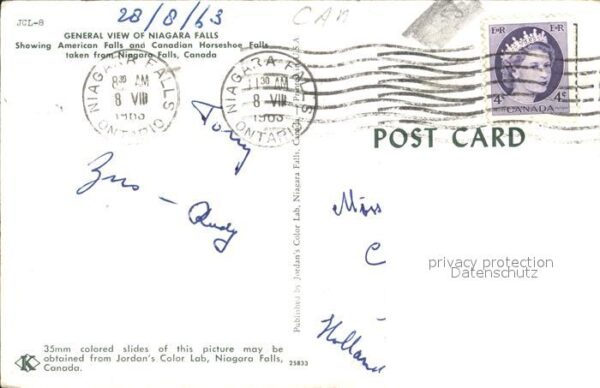 28/8/63 CAN
JCL-8
GENERAL VIEW OF NIAGARA FALLS
Showing American Falls and Canadian Horseshoe Falls
taken from Niagara Falls, Canada
NIAGARA FALLS
8 30 AM
8 VIII
1963
ONTARIO
NIAGARA FALLS
11 30 AM
8 VIII
1963
ONTARIO
E R E R
4c CANADA 4c
POST CARD
Tony
Zus - Rudy
Published by Jordan's Color Lab, Niagara Falls, Canada
Miss
C
Holland
privacy protection
Datenschutz
35mm colored slides of this picture may be
obtained from Jordan's Color Lab, Niagara Falls,
Canada.
K
25833